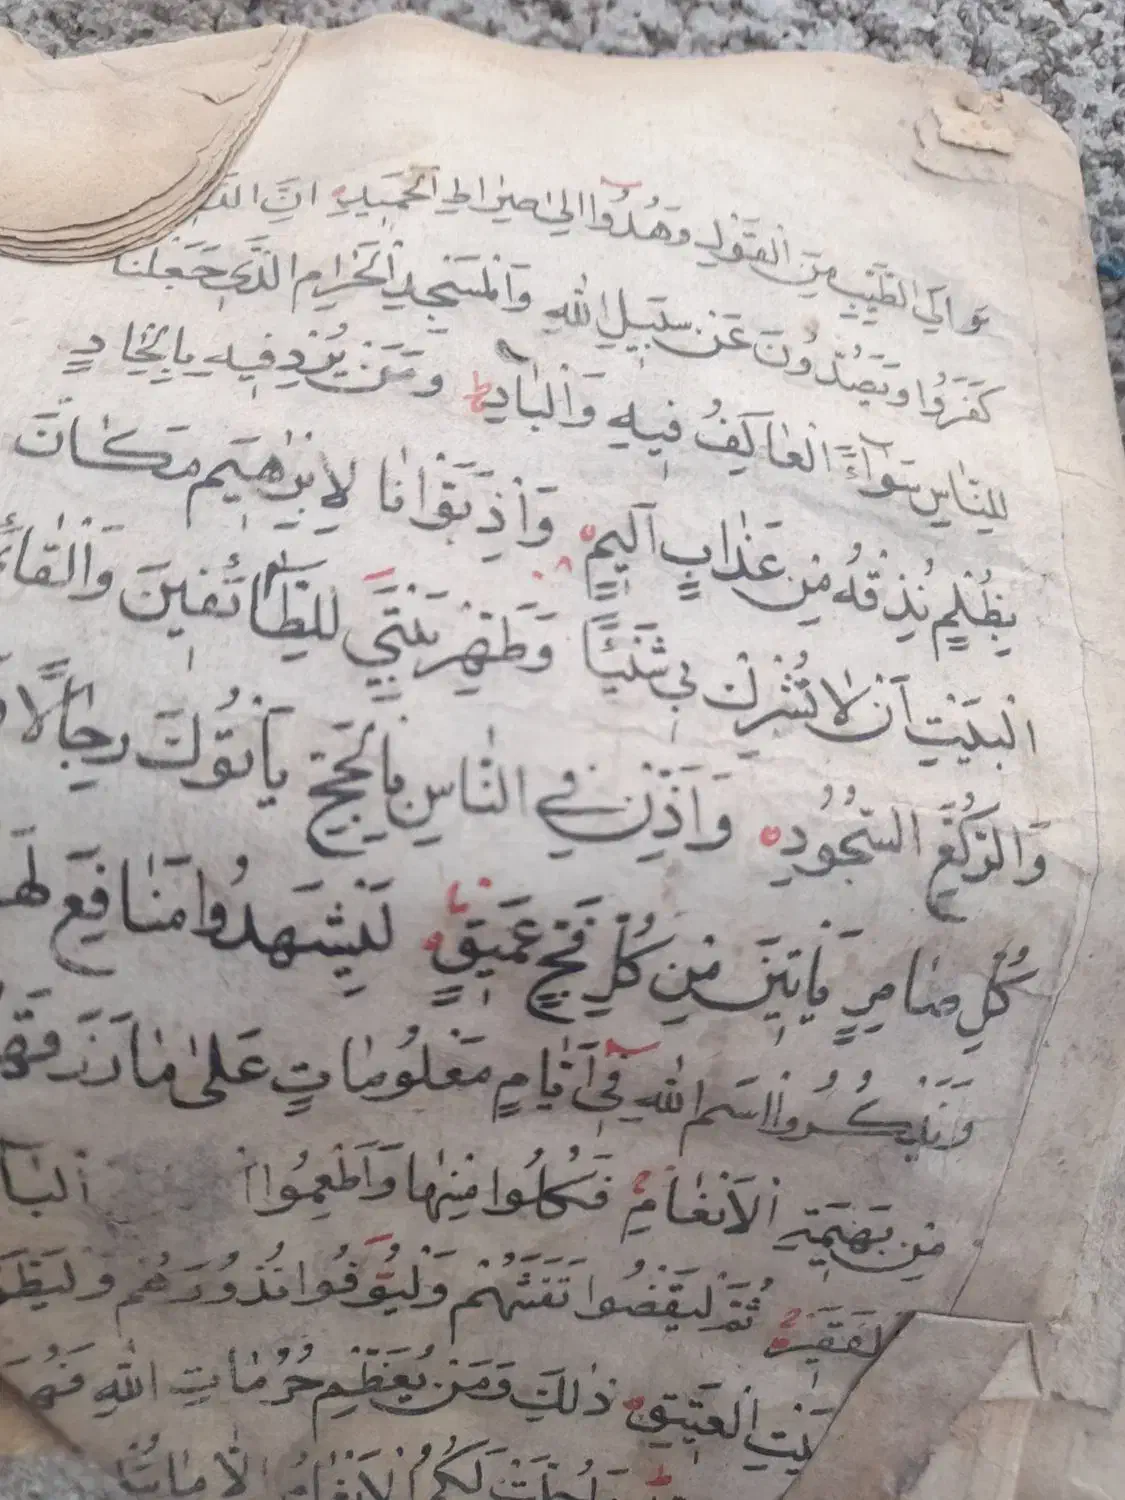 الى الطَّيِّبِ مِنَ الْقَوْلِ وَهُدُوا اِلٰى صِرَاطِ الْحَمِيدِ اِنَّ
كَفَرُوا وَيَصُدُّونَ عَنْ سَبِيلِ اللهِ وَالْمَسْجِدِ الْحَرَامِ الَّذِي جَعَلْنَا
لِلنَّاسِ سَوَآءً الْعَاكِفُ فِيهِ وَالْبَادِ وَمَنْ يُرِدْ فِيهِ بِاِلْحَادٍ
بِظُلْمٍ نُذِقْهُ مِنْ عَذَابٍ اَلِيمٍ وَاِذْ بَوَّأْنَا لِاِبْرٰهِيمَ مَكَانَ
الْبَيْتِ اَنْ لَا تُشْرِكْ بِي شَيْئًا وَطَهِّرْ بَيْتِيَ لِلطَّائِفِينَ
وَالرُّكَّعِ السُّجُودِ وَاَذِّنْ فِي النَّاسِ بِالْحَجِّ يَأْتُوكَ رِجَالًا
كُلِّ ضَامِرٍ يَأْتِينَ مِنْ كُلِّ فَجٍّ عَمِيقٍ لِيَشْهَدُوا مَنَافِعَ
وَيَذْكُرُوا اسْمَ اللهِ فِي اَيَّامٍ مَعْلُومَاتٍ عَلٰى مَا رَزَقَهُ
مِنْ بَهِيمَةِ الْاَنْعَامِ فَكُلُوا مِنْهَا وَاَطْعِمُوا
لْفَقِيرَ ثُمَّ لْيَقْضُوا تَفَثَهُمْ وَلْيُوفُوا نُذُورَهُمْ
يْتِ الْعَتِيقِ ذٰلِكَ وَمَنْ يُعَظِّمْ حُرُمَاتِ اللهِ فَهُوَ
لَكُمُ الْاَنْعَامُ اِلَّا مَا